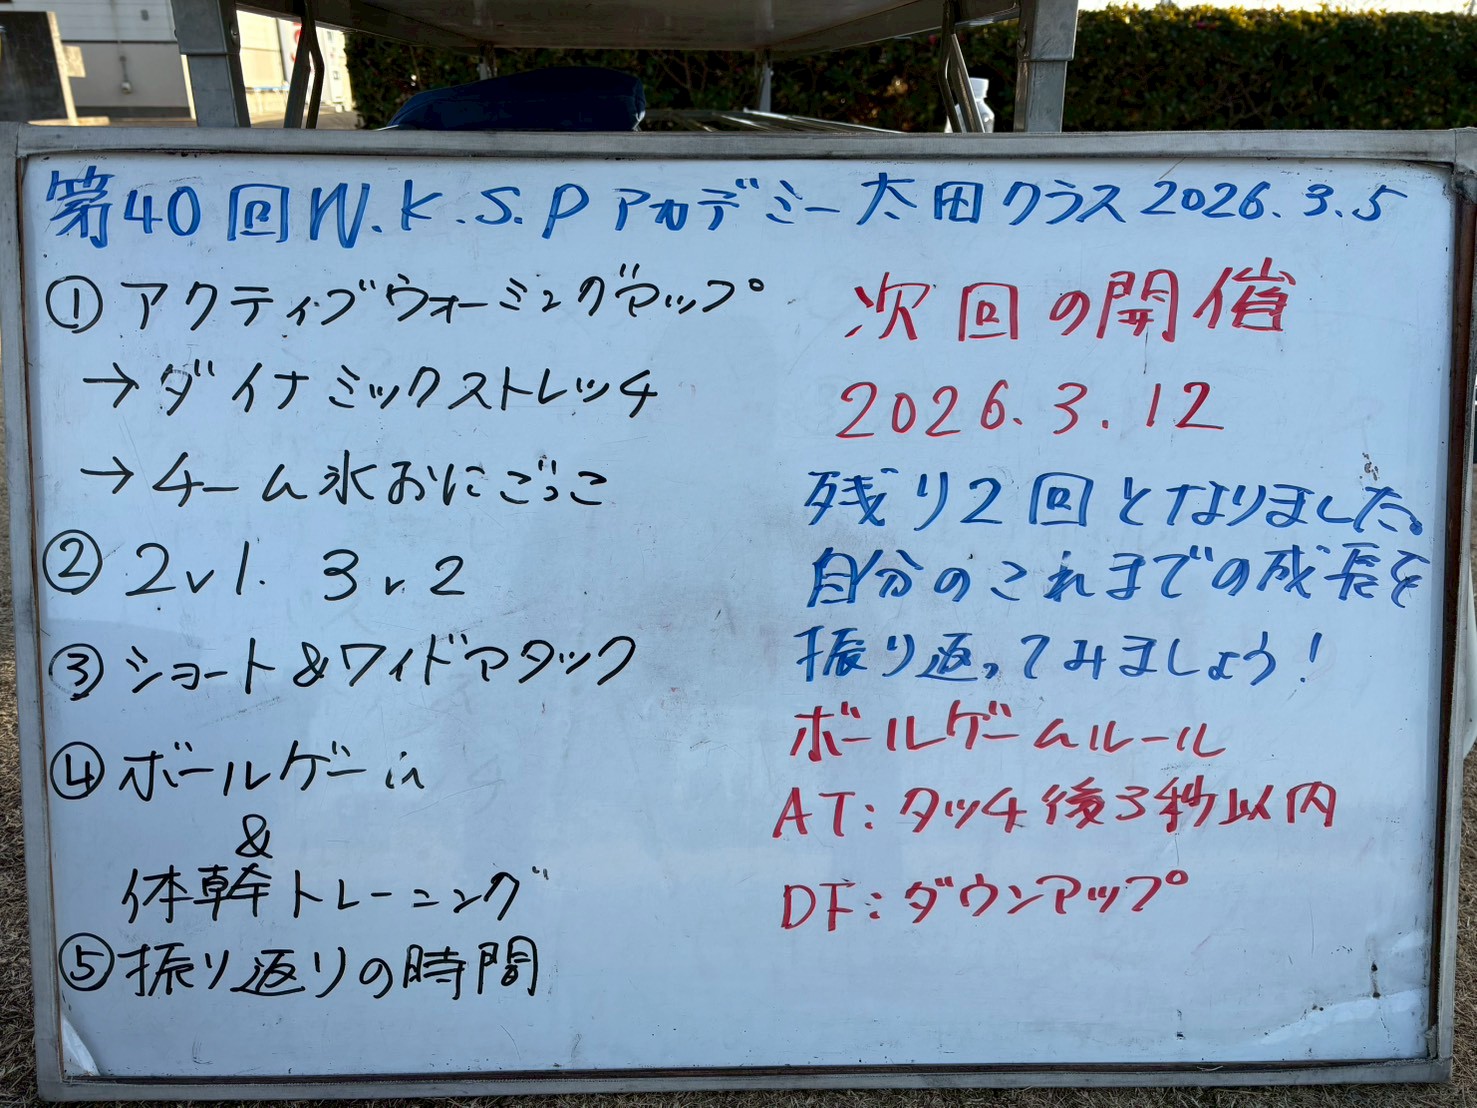 第40回W.K.S.Pアカデミー太田クラス2026.3.5
①アクティブウォーミングアップ
→ダイナミックストレッチ
→チーム氷おにごっこ
②2v1. 3v2
③ショート&ワイドアタック
④ボールゲーム
&
体幹トレーニング
⑤振り返りの時間
次回の開催
2026.3.12
残り2回となりました。
自分のこれまでの成長を
振り返ってみましょう!
ボールゲームルール
AT:タッチ後3秒以内
DF:ダウンアップ